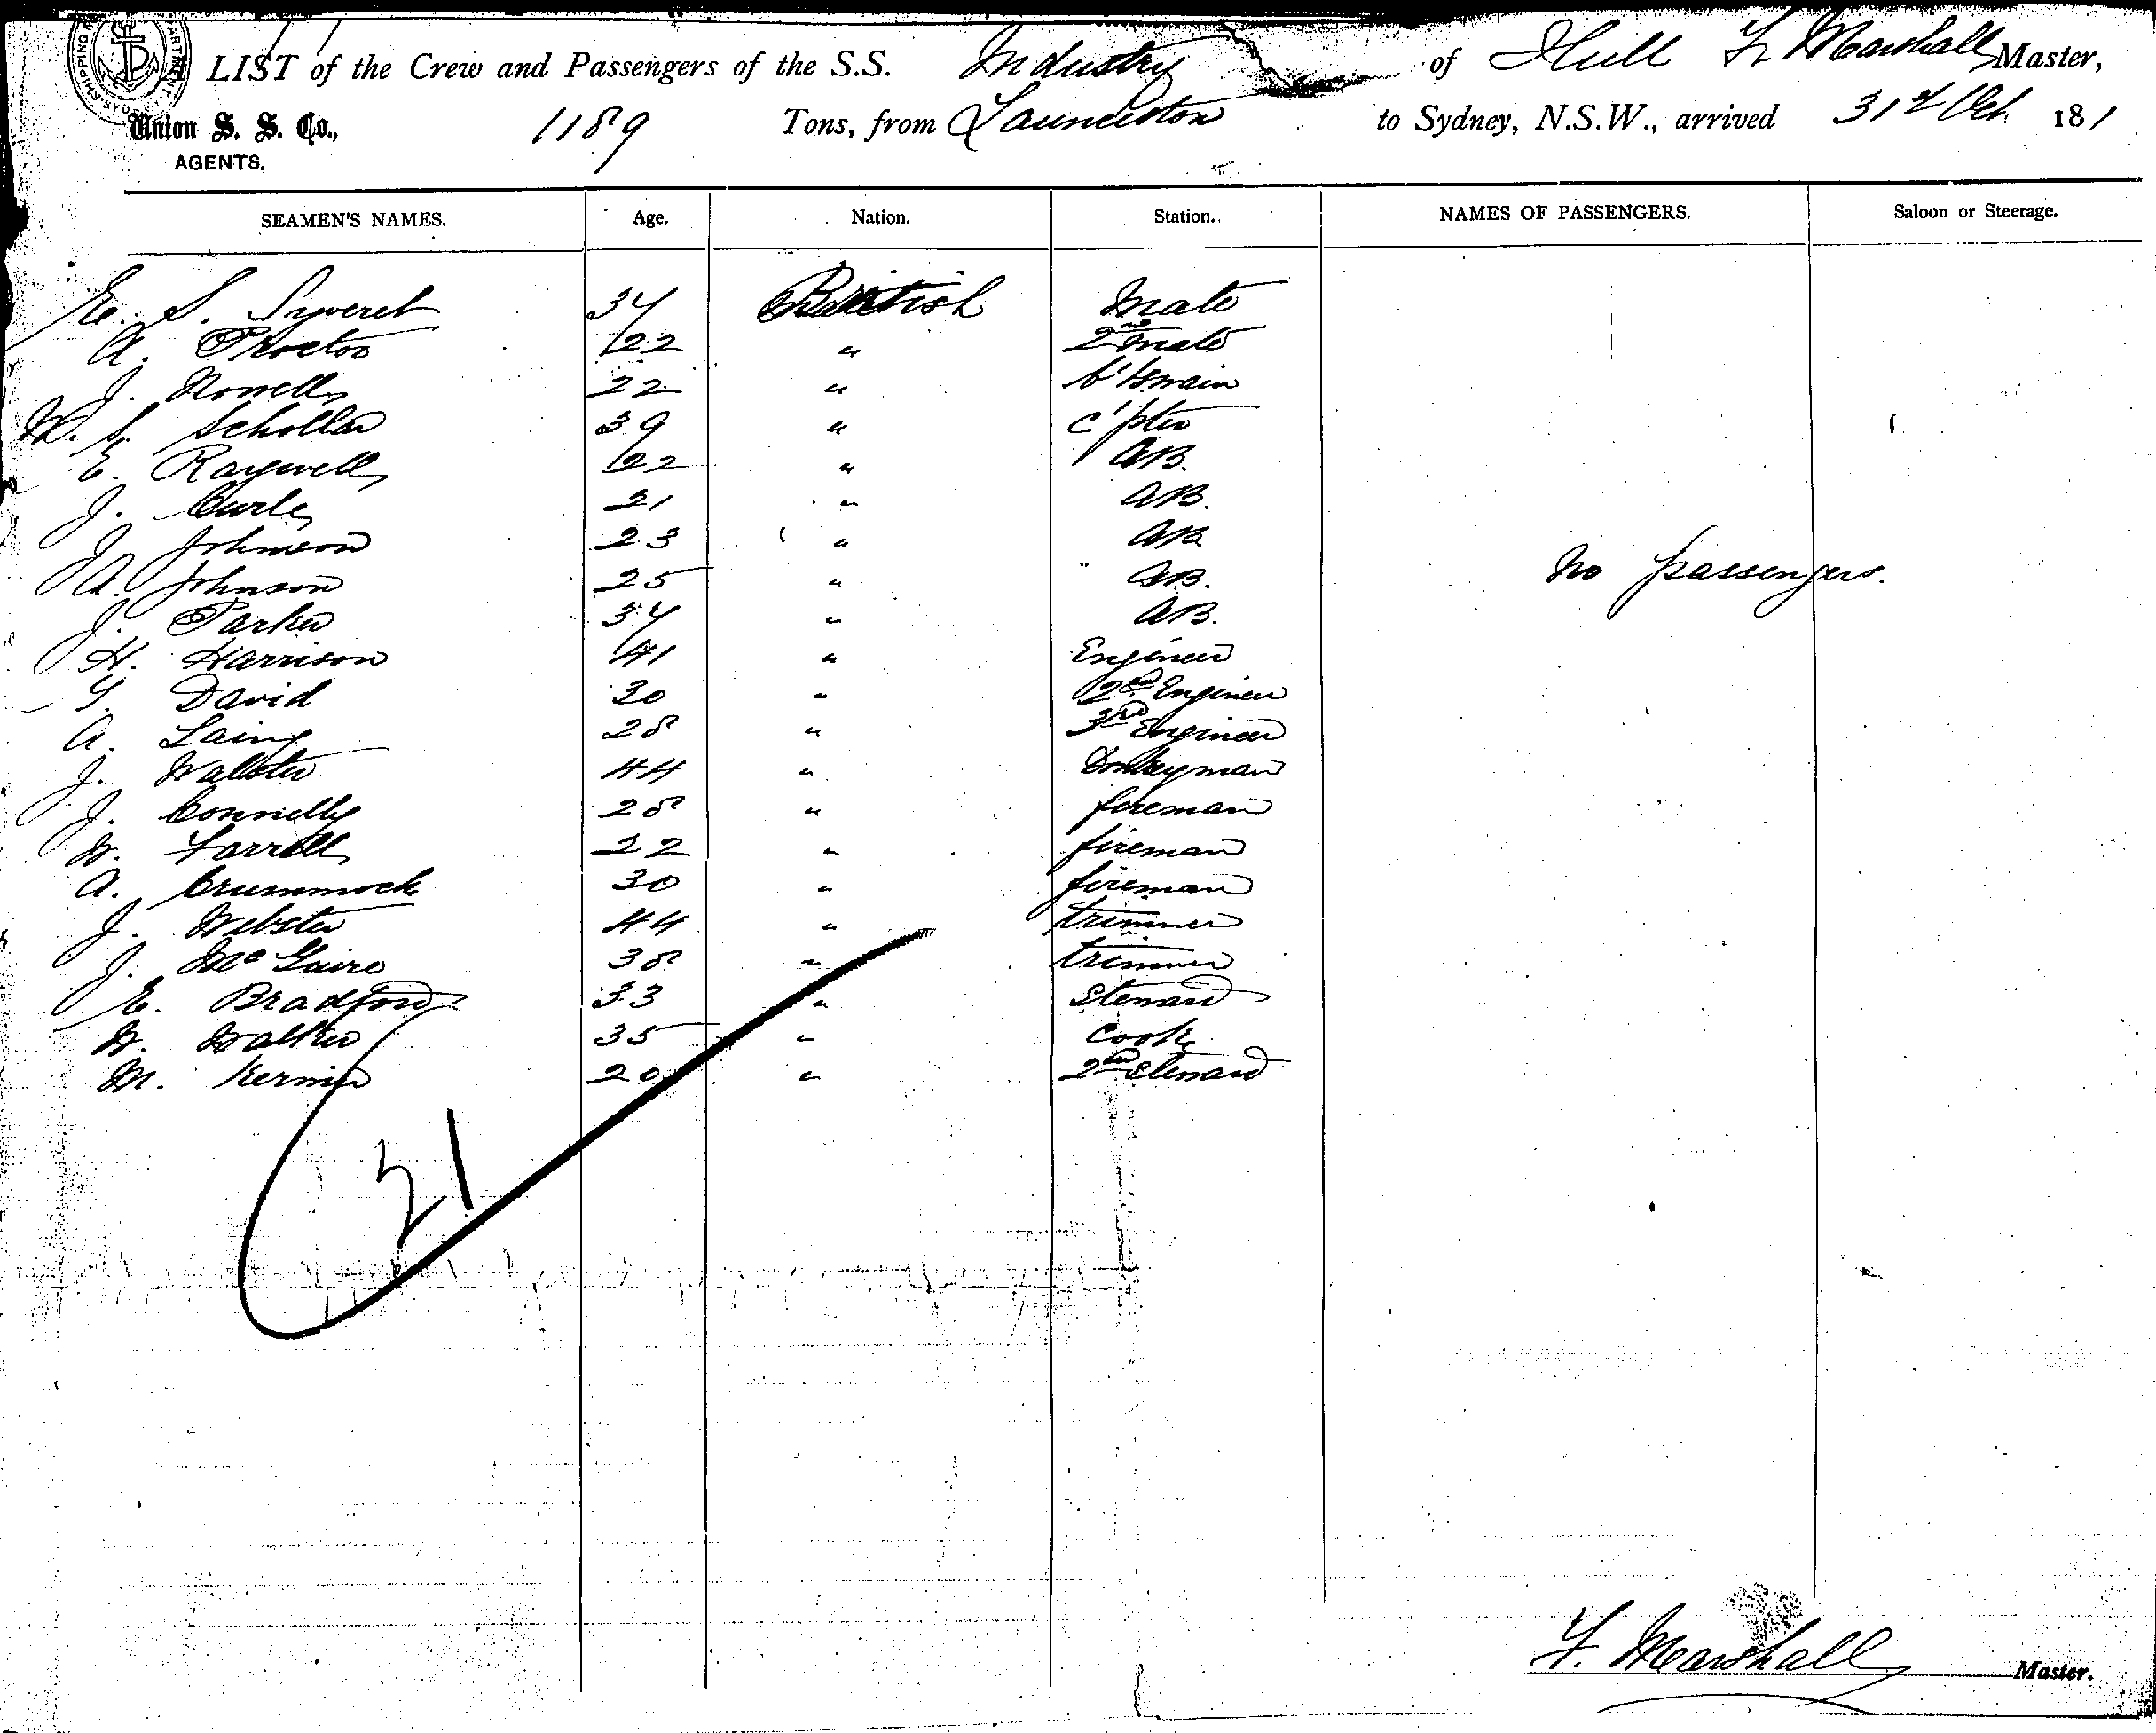 LIST of the Crew and Passengers of the S.S. Industry of Hull F. Marshall Master,
Union S. S. Co., AGENTS. 1189 Tons, from Launceston to Sydney, N.S.W., arrived 31st Oct 18 1
SEAMEN'S NAMES. Age. Nation. Station. NAMES OF PASSENGERS. Saloon or Steerage.
E. S. Syveret 34 British Mate
A. Proctor 22 " 2nd mate
J. 22 " b'tswain
W. S. Schollar 39 " c'pter
E. Raywell 22 " AB.
J. Curle 21 " AB.
J. Johnson 23 " AB
A. Johnson 25 " AB.
No passengers.
J. Parker 34 " AB.
H. Harrison 41 " Engineer
David 30 " 2nd Engineer
A. Laing 28 " 3rd Engineer
J. Walster 44 " Donkeyman
J. Connelly 28 " foreman
W. Farrell 22 " fireman
A. Crummock 30 " fireman
J. Webster 44 " trimmer
J. McGuire 38 " trimmer
E. Bradford 33 " Steward
W. Walker 35 " Cook
M. Kernin 20 " 2nd Steward
21
F. Marshall Master.